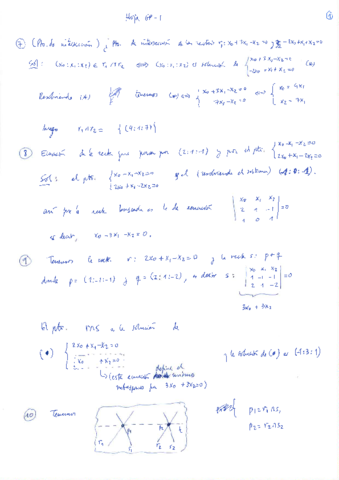 Hoja GP-1
①
7) (Pto. de intersección) ¿Pto. de intersección de las rectas r₁: x0+3x1-x2=0 y r₂: -2x0+x1+x2=0
Sol: (x0:x1:x2) ∈ r₁∩r₂ (x0:x1:x2) es solución de { x0+3x1-x2=0
-2x0+x1+x2=0 (*)
Resolviendo (*) tenemos { x0+3x1-x2=0
7x1-x2=0
{ x0=4x1
x2=7x1
luego r₁∩r₂ = {(4:1:7)}
8) Ecuación de la recta que pasa por (2:1:-1) y por el pto. { x0-x1-x2=0
2x0+x1-2x2=0
Sol: el pto. { x0-x1-x2=0
2x0+x1-2x2=0 es el (resolviendo el sistema) (1:0:1).
así pues la recta buscada es la de ecuación
| x0 x1 x2
2 1 -1
1 0 1 | = 0
es decir, x0-3x1-x2=0.
9) Tenemos la recta r: 2x0+x1-x2=0 y la recta s: p+q
donde p=(1:1:-1) y q=(2:1:-2), es decir s:
| x0 x1 x2
1 1 -1
2 1 -2 | = 0
El pto. r∩s es la solución de
(*) { 2x0+x1-x2=0
x0 +x2=0
y la solución de (*) es (-1:3:1)
(esta ecuación define el mismo
subespacio que
10) Tenemos
r₁ s₁ r₂ s₂
p₁ p₂ t
p₁=r₁∩s₁
p₂=r₂∩s₂